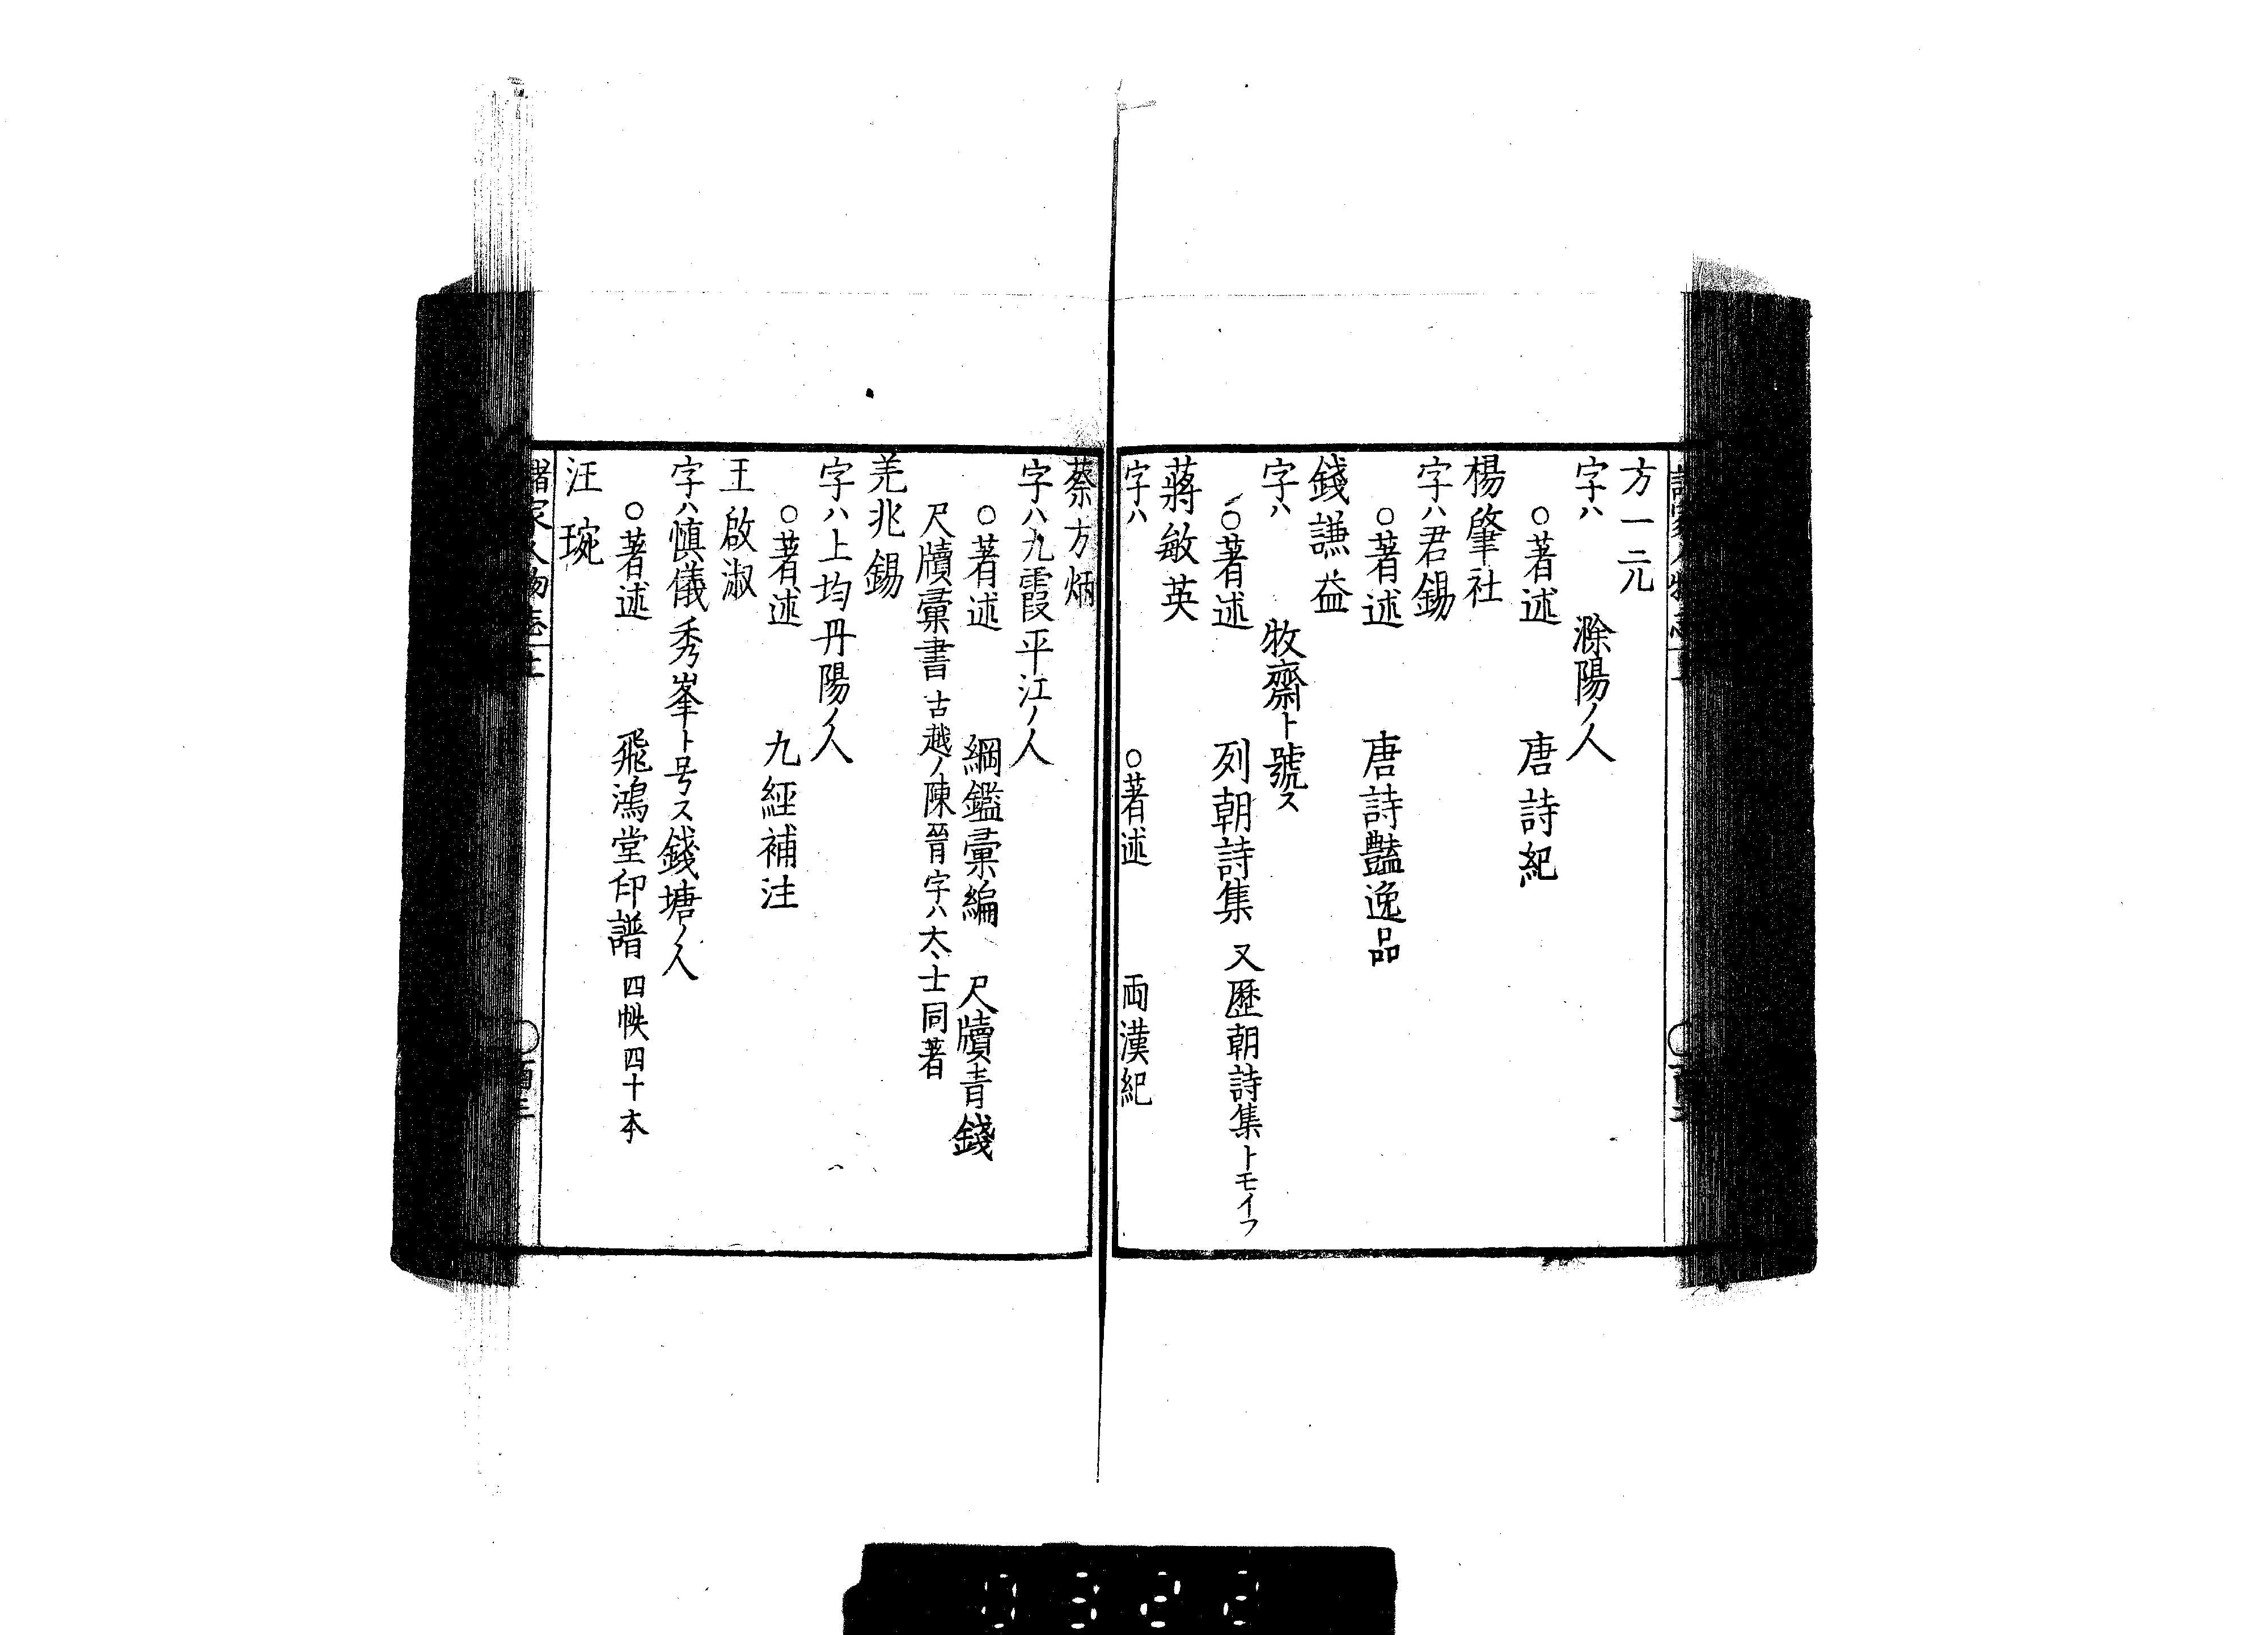 方一元
字ハ　　滁陽ノ人
○著述　　唐詩紀
楊肇社
字ハ君錫
○著述　　唐詩豔逸品
錢謙益
字ハ　　牧齋ト號ス
○著述　　列朝詩集　又歷朝詩集トモイフ
蔣敏英
字ハ　　○著述　　両漢紀
蔡方炳
字ハ九霞平江ノ人
○著述　　綱鑑彙編　尺牘青錢
尺牘彙書　古越ノ陳晉字ハ太士同著
羌兆錫
字ハ上均丹陽ノ人
○著述　　九經補注
王啟淑
字ハ慎儀秀峯ト号ス錢塘ノ人
○著述　　飛鴻堂印譜　四帙四十本
汪琬
諸家人物志